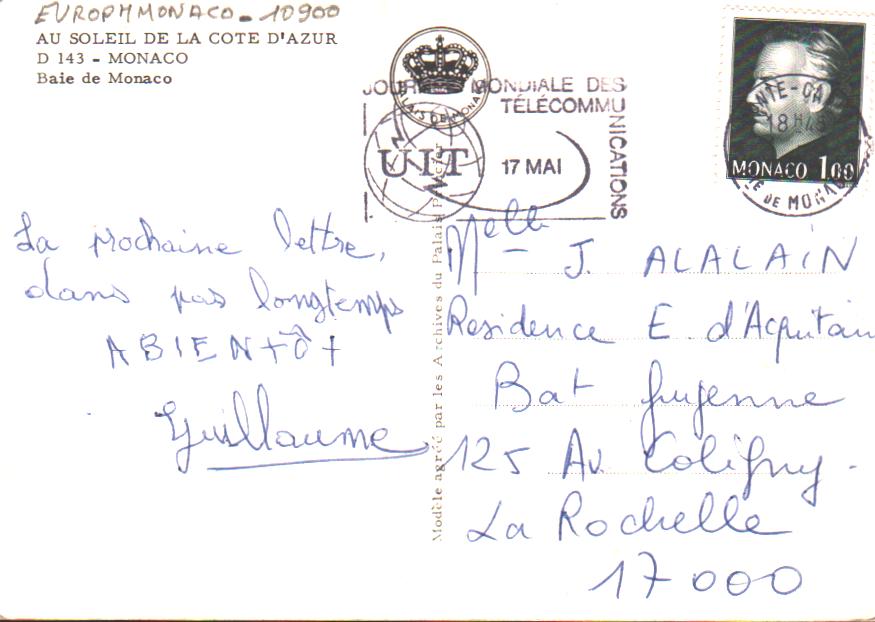 EUROPMMONACO - 10900
AU SOLEIL DE LA COTE D'AZUR
D 143 - MONACO
Baie de Monaco
JOURNÉE MONDIALE DES
TÉLÉCOMMUNICATIONS
UIT
17 MAI
PALAIS DE MONACO
MONTE-CARLO
18H45
PTE DE MONACO
MONACO 1,00
Modèle agréé par les Archives du Palais Princier
La prochaine lettre,
dans pas longtemps
ABIENTÔT
Guillaume
Melle J. ALALAIN
Residence E. d'Aquitain
Bat guyenne
125 Av. Coligny.
La Rochelle
17000